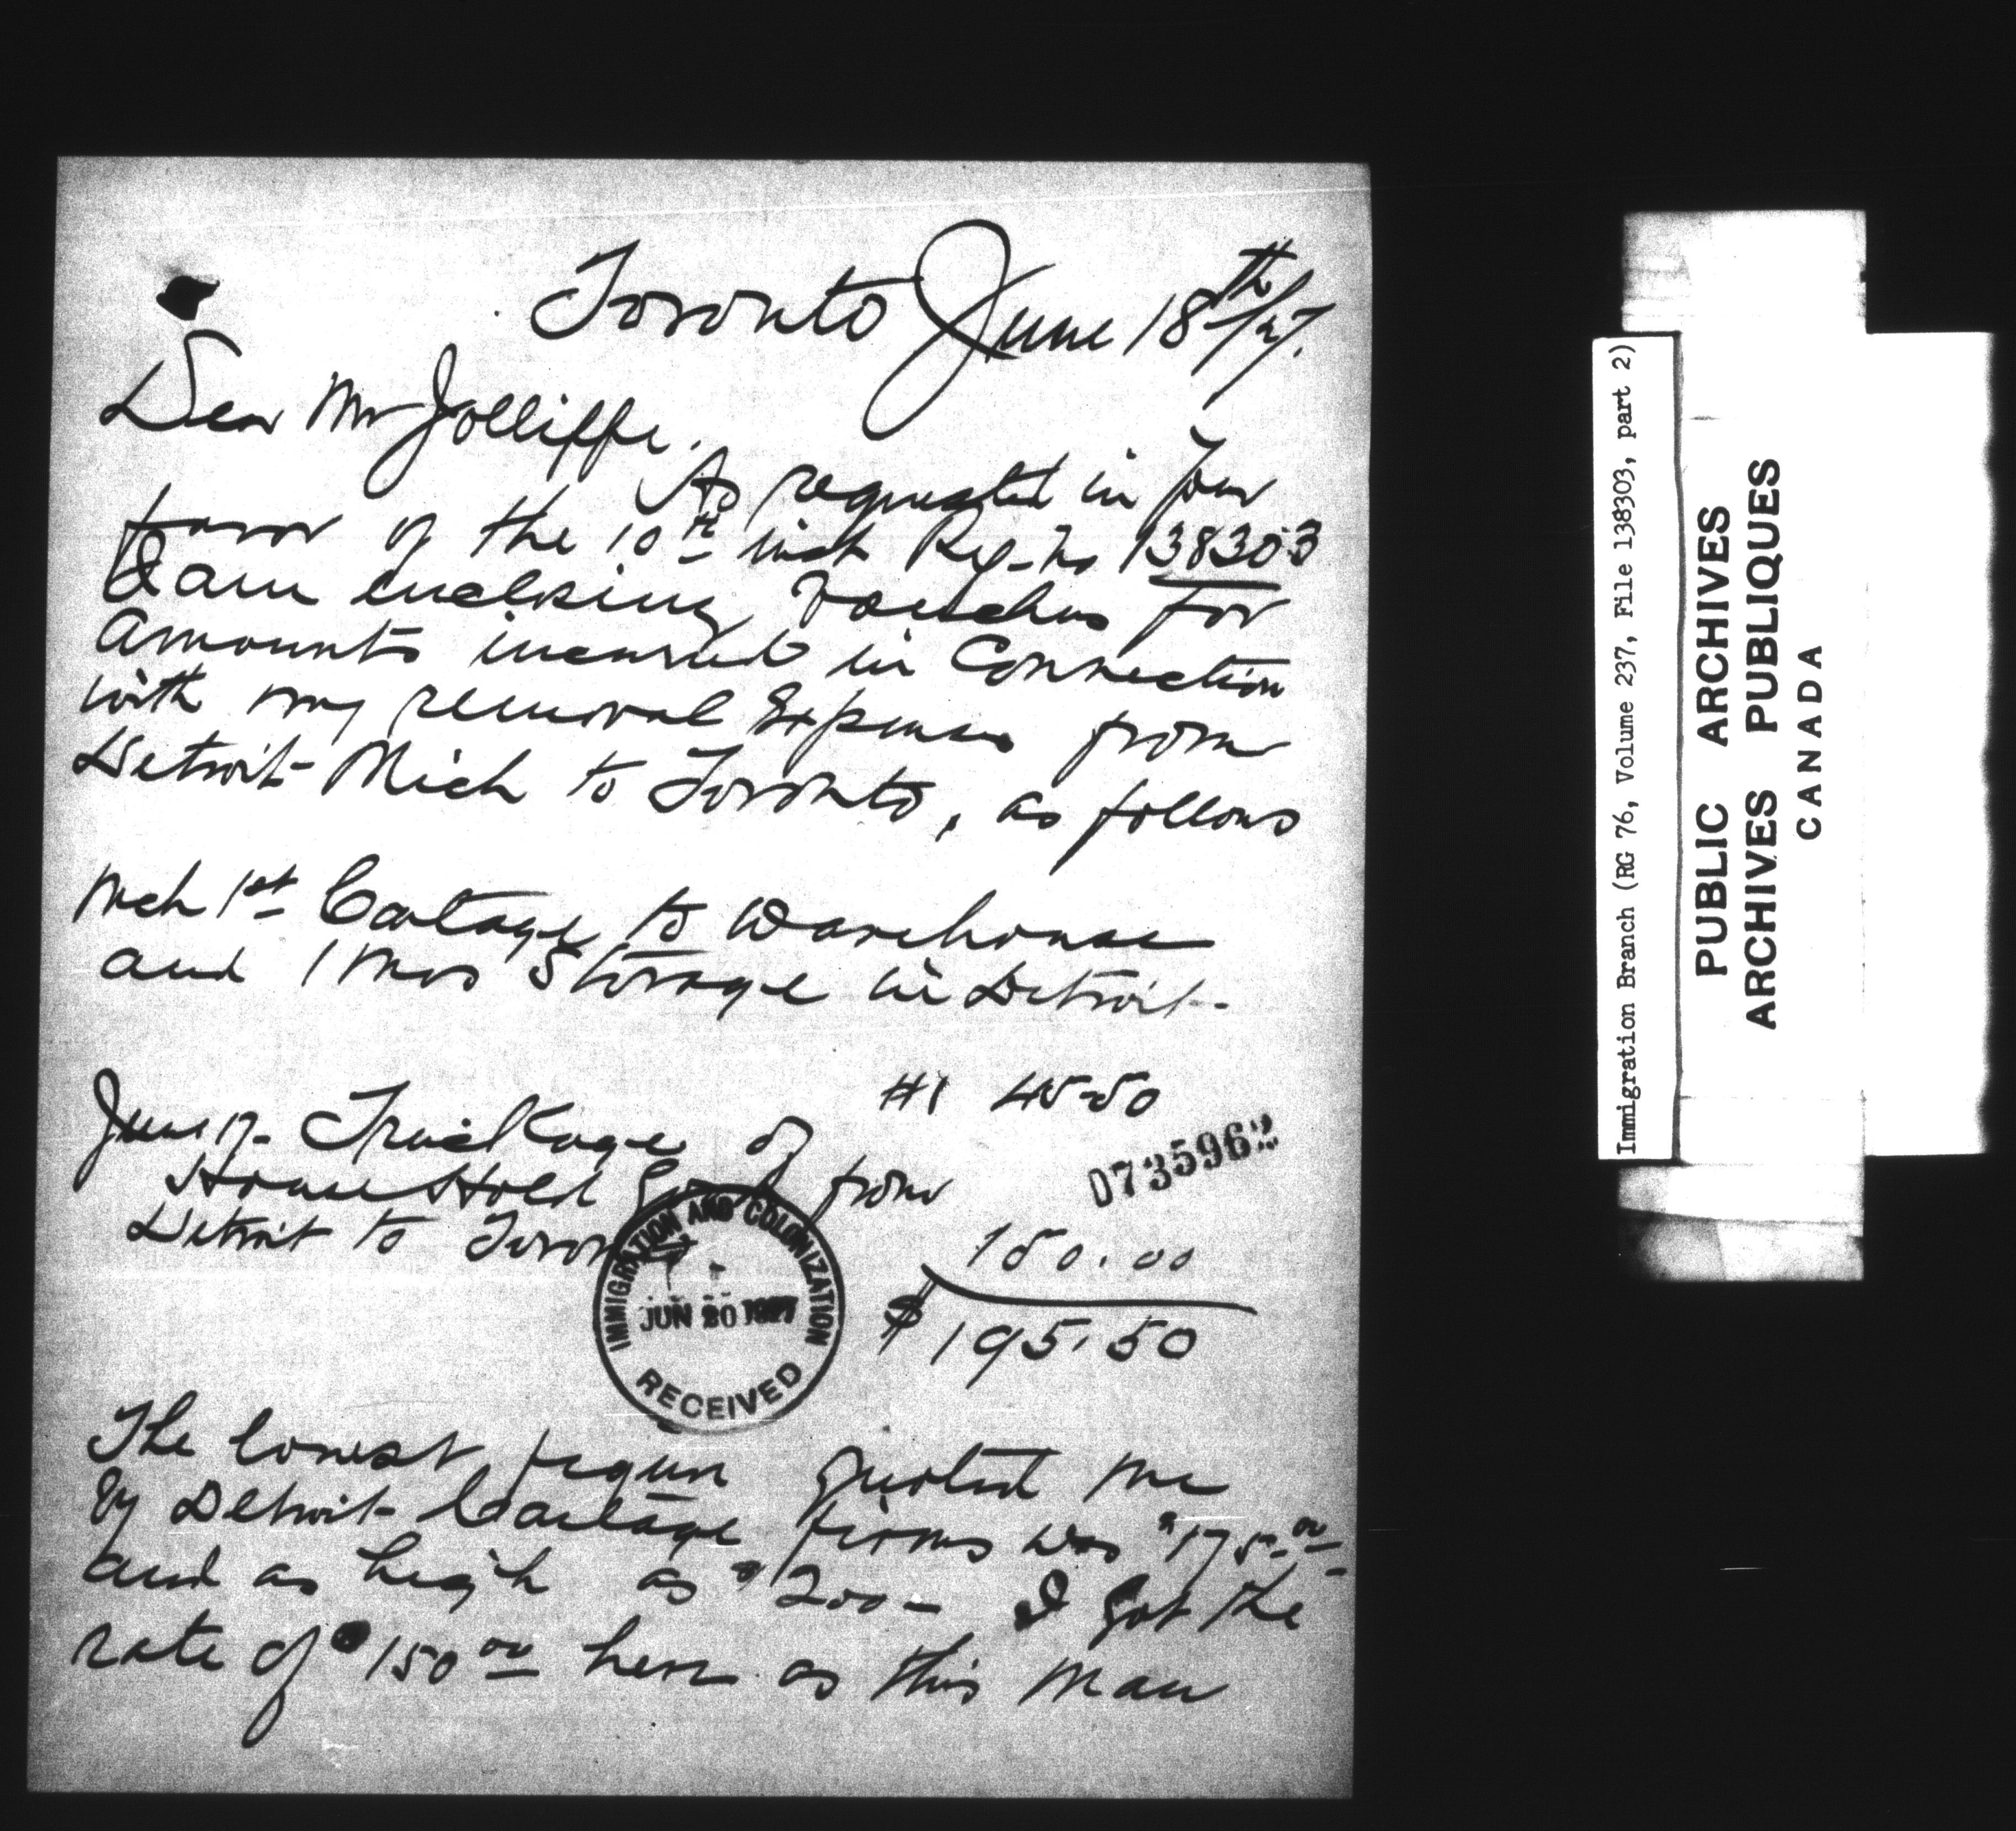 Toronto June 18th/27.
Dear Mr Jolliffe.
As requested in your
favor of the 10th inst Reg. No 138303
I am enclosing Vouchers for
Amounts incurred in Connection
with my removal Expenses from
Detroit Mich to Toronto, as follows
Mch 1st Cartage to Warehouse
and 1 Mos Storage in Detroit-
#1 45.50
June 17- Truckage of
HouseHold Goods from
Detroit to Toronto
0735962
150.00
$195.50
IMMIGRATION AND COLONIZATION
JUN 20 1927
RECEIVED
The lowest figure quoted me
by Detroit Cartage firms was $175.00
and as high as $200- I got the
rate of $150.00 here as this man
Immigration Branch (RG 76, Volume 237, File 138303, part 2)
PUBLIC ARCHIVES
ARCHIVES PUBLIQUES
CANADA